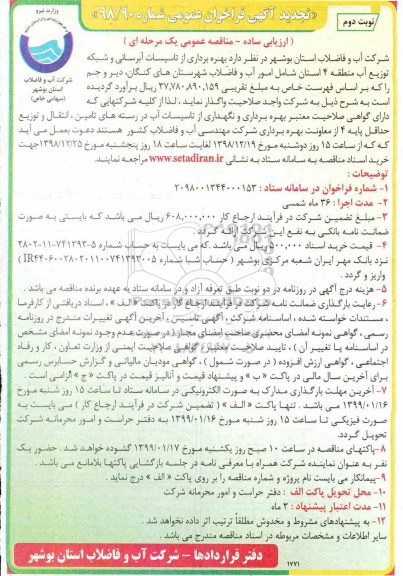 نوبت دوم
«تجدید آگهی فراخوان عمومی شماره ۹۸/۹۰»
وزارت نیرو
( ارزیابی ساده - مناقصه عمومی یک مرحله ای )
شرکت آب و فاضلاب استان بوشهر
(سهامی خاص)
شرکت آب و فاضلاب استان بوشهر در نظر دارد بهره برداری از تاسیسات آبرسانی و شبکه
توزیع آب منطقه ۴ استان شامل امور آب و فاضلاب شهرستان های کنگان، دیر و جم
را که بر اساس فهرست خاص به مبلغ تقریبی ۳۷,۷۸۰,۸۹۰,۱۵۹ ریال برآورد گردیده
است به شرح ذیل به شرکت واجد صلاحیت واگذار نماید ، لذا از کلیه شرکتهایی که
دارای گواهی صلاحیت معتبر بهره برداری و نگهداری از تاسیسات آب در رسته های تامین ، انتقال و توزیع
حداقل پایه ۴ از معاونت بهره برداری شرکت مهندسی آب و فاضلاب کشور هستند دعوت بعمل می آید
که که از ساعت ۱۵ روز دوشنبه مورخ ۱۳۹۸/۱۲/۱۹ لغایت ساعت ۱۸ روز پنجشنبه مورخ ۱۳۹۸/۱۲/۲۵ جهت
خرید اسناد مناقصه به سامانه ستاد به نشانی www.setadiran.ir مراجعه نمایند.
توضیحات :
۱- شماره فراخوان در سامانه ستاد : ۲۰۹۸۰۰۱۳۴۴۰۰۰۱۵۳
۲- مدت اجرا : ۳۶ ماه شمسی
۳- مبلغ تضمین شرکت در فرآیند ارجاع کار ۶۰۸,۰۰۰,۰۰۰ ریال می باشد که بایستی به صورت
ضمانت نامه بانکی به نفع این شرکت ارائه گردد .
۴- قیمت خرید اسناد ۵۰۰,۰۰۰ ریال می باشد .که می بایست به حساب شماره ۵-۷۴۱۳۹۲-۱۱-۲۸۰۲
نزد بانک مهر ایران شعبه مرکزی بوشهر ( حساب شبا شماره IR۴۴۰۶۰۰۲۸۰۲۰۱۱۰۰۷۴۱۳۹۲۰۰۵ )
واریز و گردد .
۵- هزینه درج آگهی در روزنامه در دو نوبت طبق تعرفه آزاد و در سامانه ستاد به عهده برنده مناقصه می باشد .
۶- رعایت بارگذاری ضمانت نامه شرکت در فرآیند ارجاع کار در پاکت « الف » ، اسناد دریافتی از کارفرما
، مستندات خواسته شده ، اساسنامه شرکت ، آگهی تاسیس ، آخرین آگهی تغییرات مندرج در روزنامه
رسمی ، گواهی نمونه امضای محضری صاحب امضای مجاز ( در صورت عدم وجود نمونه امضای مشخص
در اساسنامه یا تغییر آن ) ، تایید صلاحیت معتبر ، گواهی صلاحیت ایمنی از وزارت تعاون ، کار و رفاه
اجتماعی ، گواهی ارزش افزوده ( در صورت شمول ) ، گواهی مودیان مالیاتی و گزارش حسابرس رسمی
برای آخرین سال مالی در پاکت « ب » و پیشنهاد قیمت و آنالیز قیمت در پاکت « ج » الزامی است .
۷- آخرین مهلت بارگذاری مدارک به صورت الکترونیکی در سامانه ستاد تا ساعت ۱۵ روز شنبه مورخ
۱۳۹۹/۰۱/۱۶ می باشد . تنها پاکت « الف » ( تضمین شرکت در فرآیند ارجاع کار ) می بایست به
صورت فیزیکی تا ساعت ۱۵ روز شنبه مورخ ۱۳۹۹/۰۱/۱۶ به دفتر حراست و امور محرمانه شرکت
تحویل گردد.
۸- پاکتهای مناقصه در ساعت ۱۰ صبح روز یکشنبه مورخ ۱۳۹۹/۰۱/۱۷ گشوده خواهد شد . حضور یک
نفر به عنوان نماینده شرکت همراه با معرفی نامه در جلسه بازگشایی پاکتها بلامانع می باشد.
۹- پیمانکار می بایست نام پروژه و شماره مناقصه را بر روی پاکت « الف » درج نماید .
۱۰- محل تحویل پاکت الف : دفتر حراست و امور محرمانه شرکت
۱۱- مدت اعتبار پیشنهاد : ۳ ماه
۱۲- به پیشنهادهای مشروط و مخدوش مطلقاً ترتیب اثر داده نخواهد شد .
سایر اطلاعات و مشخصات مربوطه در اسناد مناقصه مندرج می باشد .
۱۷۷۱
دفتر قراردادها - شرکت آب و فاضلاب استان بوشهر